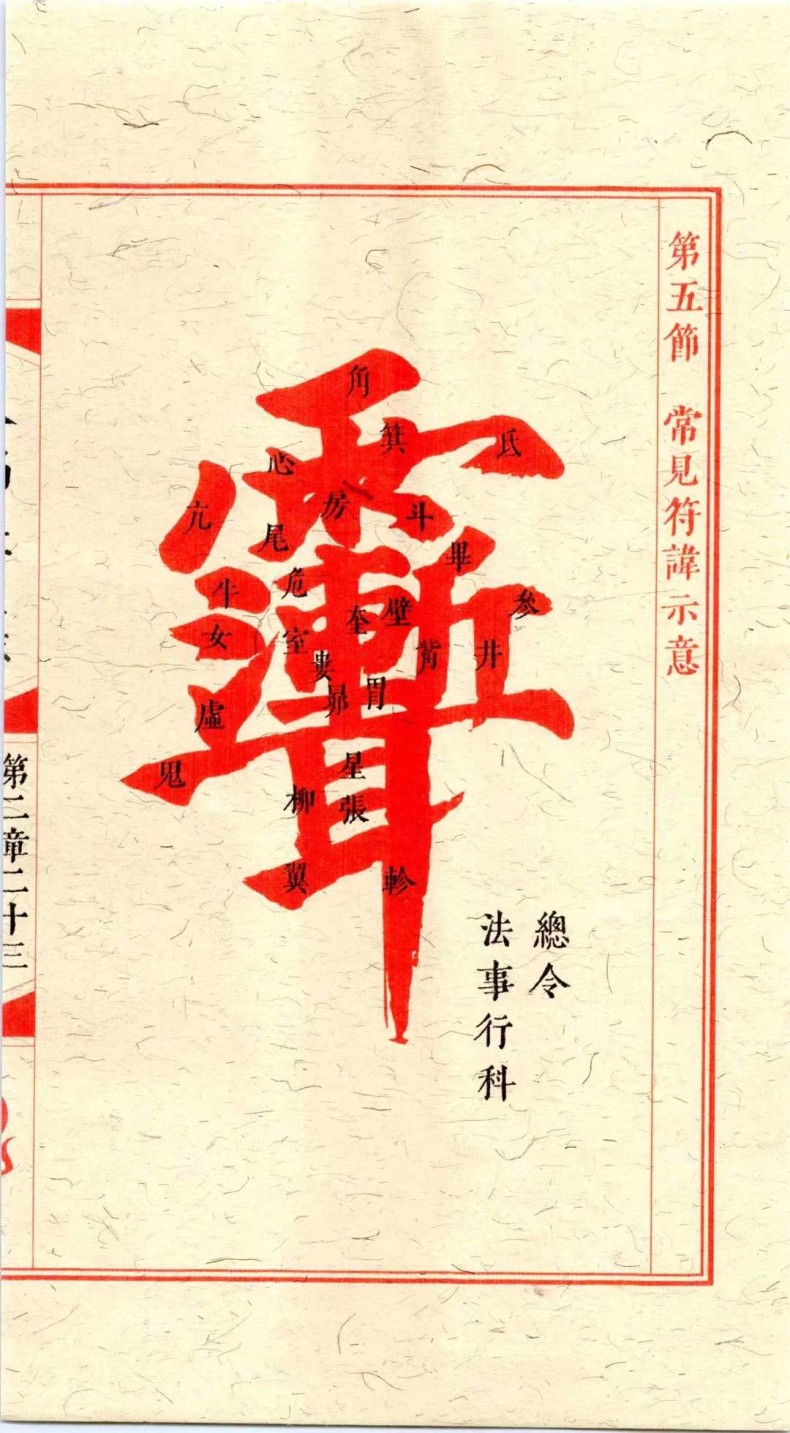 第五節 常見符諱示意
角
箕
氐
心
房
斗
亢
尾
畢
牛
危
奎
壁
參
女
室
婁
觜
井
虛
昴
胃
鬼
柳
星
張
翼
軫
總令
法事行科
第二章二十三